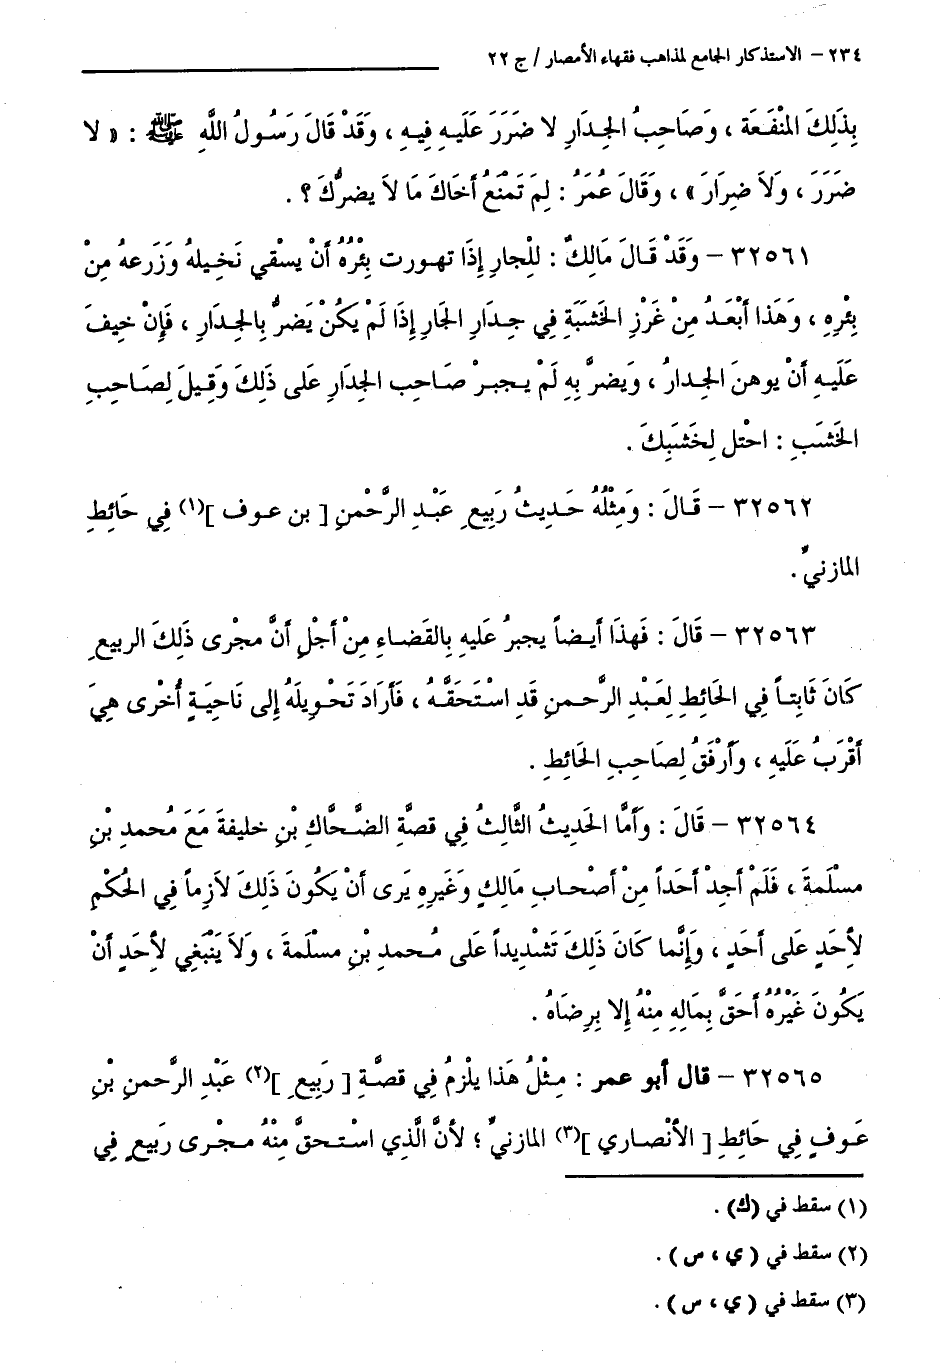 ٢٣٤ – الاستذكار الجامع لمذاهب فقهاء الأمصار / ج ٢٢
بِذَلِكَ المَنْفَعَة ، وَصَاحِبُ الجِدارِ لا ضَرَرَ عَلَيهِ فِيهِ ، وَقَدْ قَالَ رَسُولُ اللَّهِ ﷺ : « لا
ضَرَرَ ، وَلاَ ضِرَارَ » ، وَقَالَ عُمَرُ : لِمَ تَمْنَعُ أخَاكَ مَا لاَ يضرُّكَ ؟ .
٣٢٥٦١ – وَقَدْ قَالَ مَالِكٌ : للْجارِ إذَا تهورت بِئْرُهُ أنْ يسْقي نَخِيلهُ وَزَرعهُ مِنْ
بِئْرِهِ ، وَهَذا أبْعَدُ مِنْ غَرْزِ الخَشبَةِ فِي جِدارِ الجَارِ إذَا لَمْ يَكُنْ يَضرُّ بِالجِدَارِ ، فَإنْ خِيفَ
عَلَيهِ أنْ يوهنَ الجِدارُ ، وَيَضرَّ بِهِ لَمْ يجبرْ صَاحِب الجِدَارِ عَلى ذَلِكَ وَقِيلَ لِصَاحِبِ
الخَشَبِ : احْتل لِخَشَبِكَ .
٣٢٥٦٢ – قَالَ : وَمِثْلهُ حَدِيثُ رَبِيعِ عَبْدِ الرَّحْمنِ [ بن عوف ](١) فِي حَائِطِ
المازنيِّ .
٣٢٥٦٣ – قَالَ : فَهذَا أيضاً يجبرُ عَليهِ بِالقَضاءِ مِنْ أجْلِ أنَّ مجْرى ذَلِكَ الربيعِ
كَانَ ثَابِتاً فِي الحَائِطِ لِعَبْدِ الرَّحمنِ قَدِ اسْتَحَقَّهُ ، فَأرَادَ تَحْوِيلَهُ إلى نَاحِيَةٍ أُخْرى هِيَ
أقْرَبُ عَلَيهِ ، وَأرْفَقُ لِصَاحِبِ الحَائِطِ .
٣٢٥٦٤ – قَالَ : وَأمَّا الحَدِيثُ الثَّالِثُ فِي قصَّةِ الضَّحَّاكِ بْنِ خليفةَ مَعَ مُحمدِ بْنِ
مسْلَمةَ ، فَلَمْ أجِدْ أحَداً مِنْ أصْحابِ مَالِكٍ وَغَيرِهِ يَرى أنْ يَكُونَ ذَلِكَ لاَزِماً فِي الحُكْمِ
لأحَدٍ عَلى أحَدٍ ، وَإنَّما كَانَ ذَلِكَ تَشْدِيداً عَلى مُحمدِ بْنِ مسْلمةَ ، وَلاَ يَنْبَغي لأحَدٍ أنْ
يَكُونَ غَيْرُهُ أحَقَّ بِمَالِهِ مِنْهُ إلا بِرِضَاهُ .
٣٢٥٦٥ – قال أبو عمر : مِثْلُ هَذَا يلْزمُ فِي قصَّةِ [ رَبِيعِ ](٢) عَبْدِ الرَّحمنِ بْنِ
عَوفٍ فِي حَائِطِ [ الأنْصاري ](٣) المازنيِّ ؛ لأنَّ الَّذي اسْتحقَّ مِنْهُ مجْرى رَبيعٍ فِي
(١) سقط في (ك) .
(٢) سقط في ( ي ، س ) .
(٣) سقط في ( ي ، س ) .